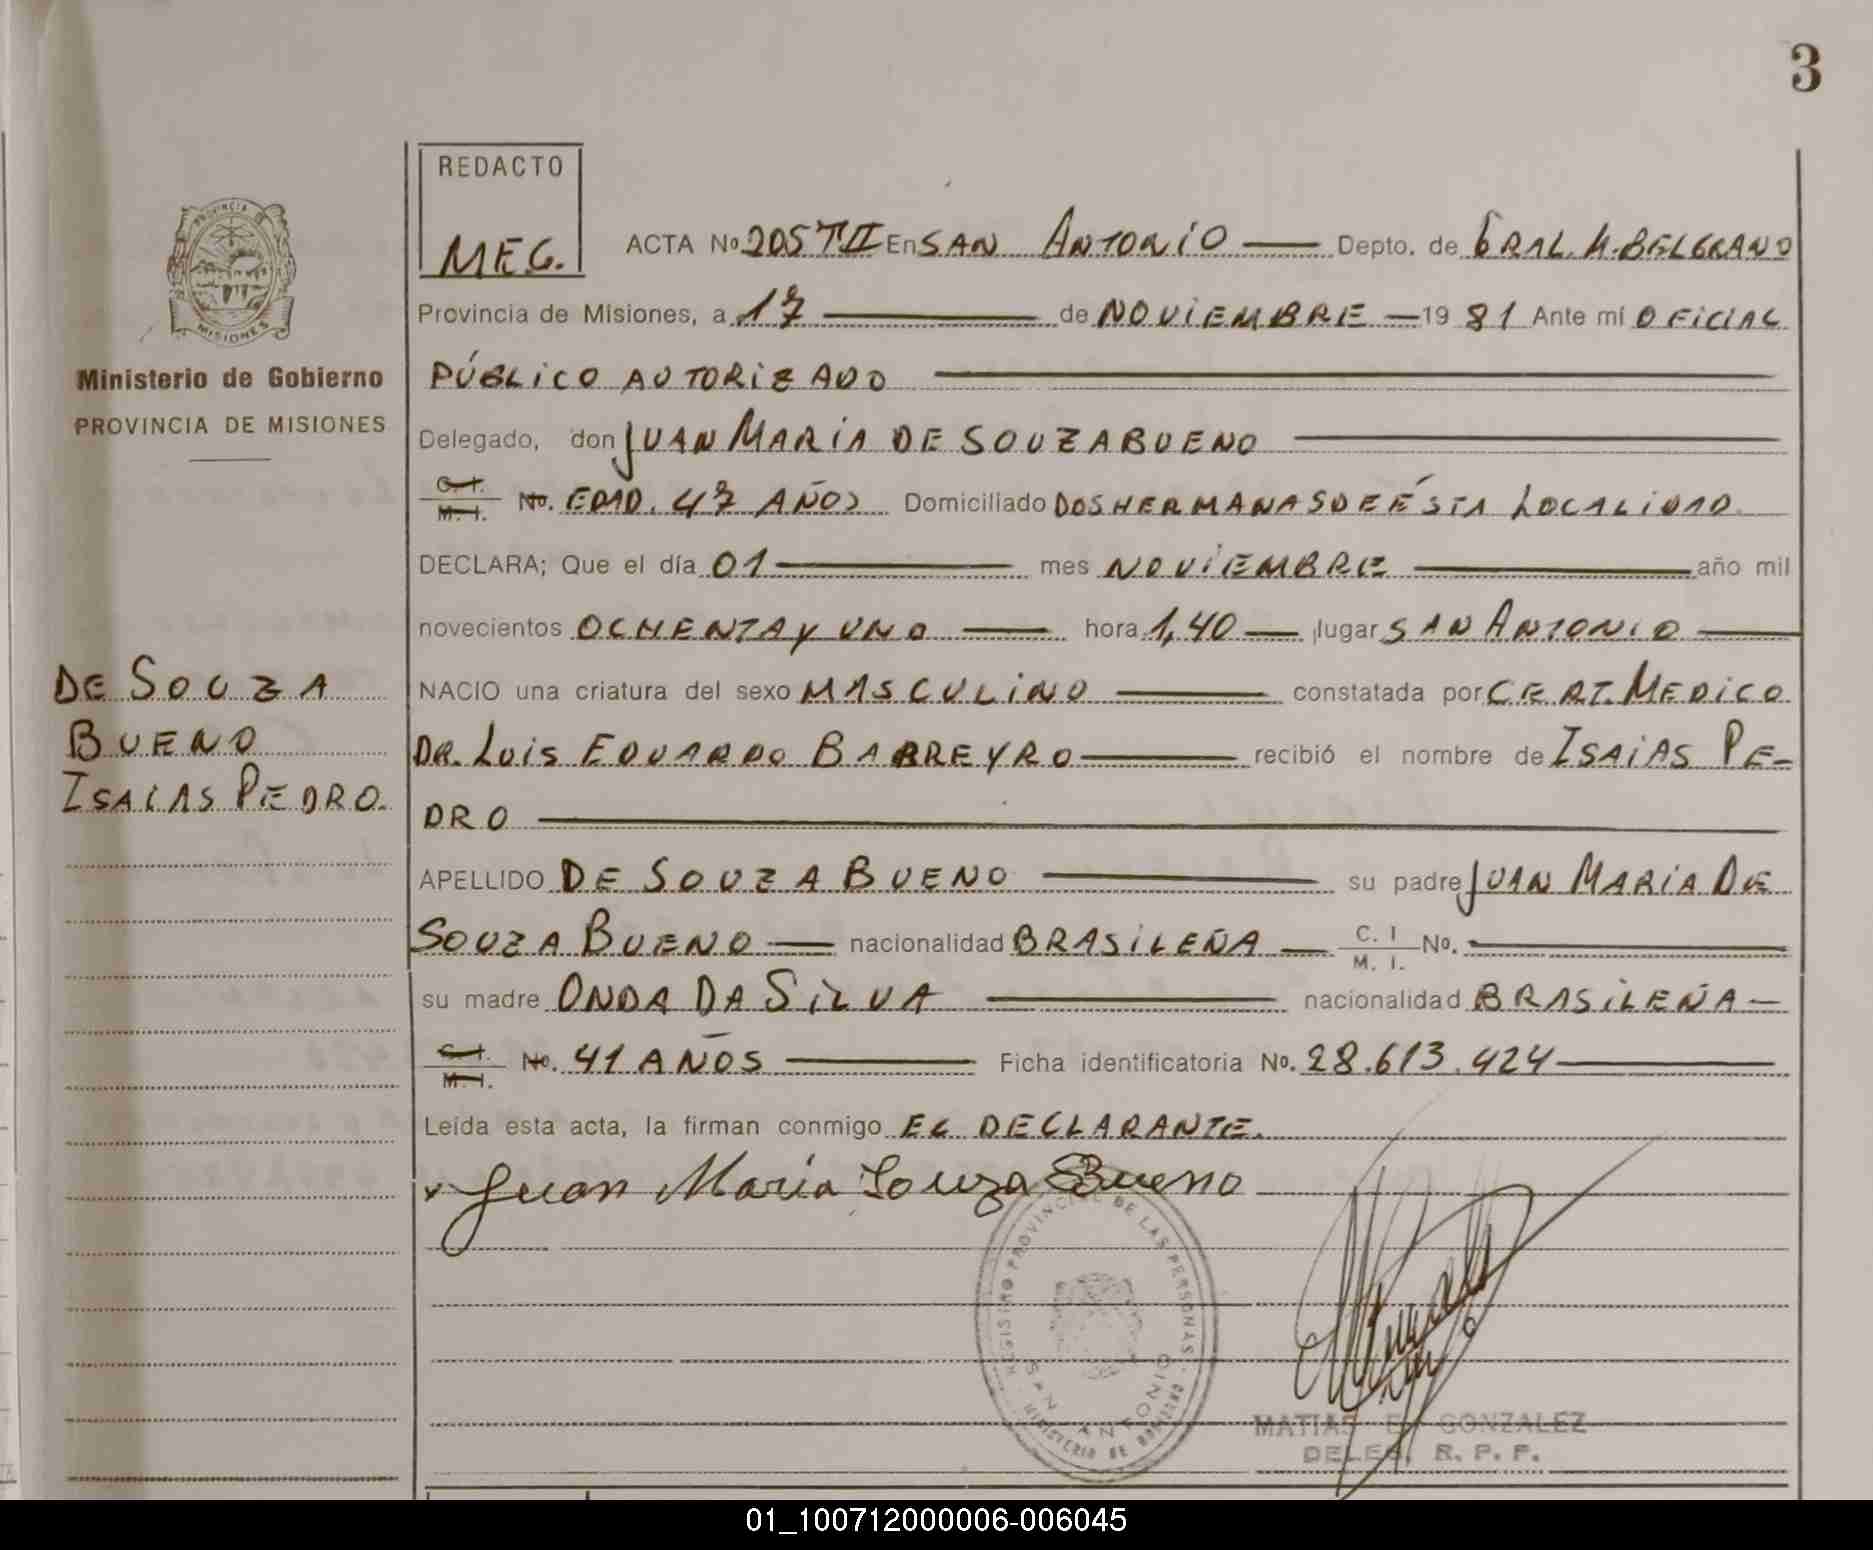 3
REDACTO
MEG.
ACTA No 205 T II En SAN ANTONIO Depto. de GRAL. M. BELGRANO
Provincia de Misiones, a 17 de NOVIEMBRE 19 81 Ante mí OFICIAL
PÚBLICO AUTORIZADO
Delegado, don JUAN MARIA DE SOUZA BUENO
C. I. M. I. No. EDAD. 47 AÑOS Domiciliado DOS HERMANAS DE ÉSTA LOCALIDAD.
DECLARA; Que el día 01 mes NOVIEMBRE año mil
novecientos OCHENTA y UNO hora 1,40 lugar SAN ANTONIO
NACIO una criatura del sexo MASCULINO constatada por CERT. MEDICO
DR. LUIS EDUARDO BARREYRO recibió el nombre de ISAIAS PE-
DRO
APELLIDO DE SOUZA BUENO su padre JUAN MARIA DE
SOUZA BUENO nacionalidad BRASILEÑA C. I M. I. No.
su madre ONDA DA SILVA nacionalidad BRASILEÑA
C. I. M. I. No. 41 AÑOS Ficha identificatoria No. 28.613.424
Leída esta acta, la firman conmigo EL DECLARANTE.
x Juan María Souza Bueno
REGISTRO PROVINCIAL DE LAS PERSONAS
SAN ANTONIO
MINISTERIO DE GOBIERNO
MATIAS E. GONZALEZ
DELEG. R. P. P.
PROVINCIA D
MISIONES
Ministerio de Gobierno
PROVINCIA DE MISIONES
DE SOUZA
BUENO
ISAIAS PEDRO.
01_100712000006-006045